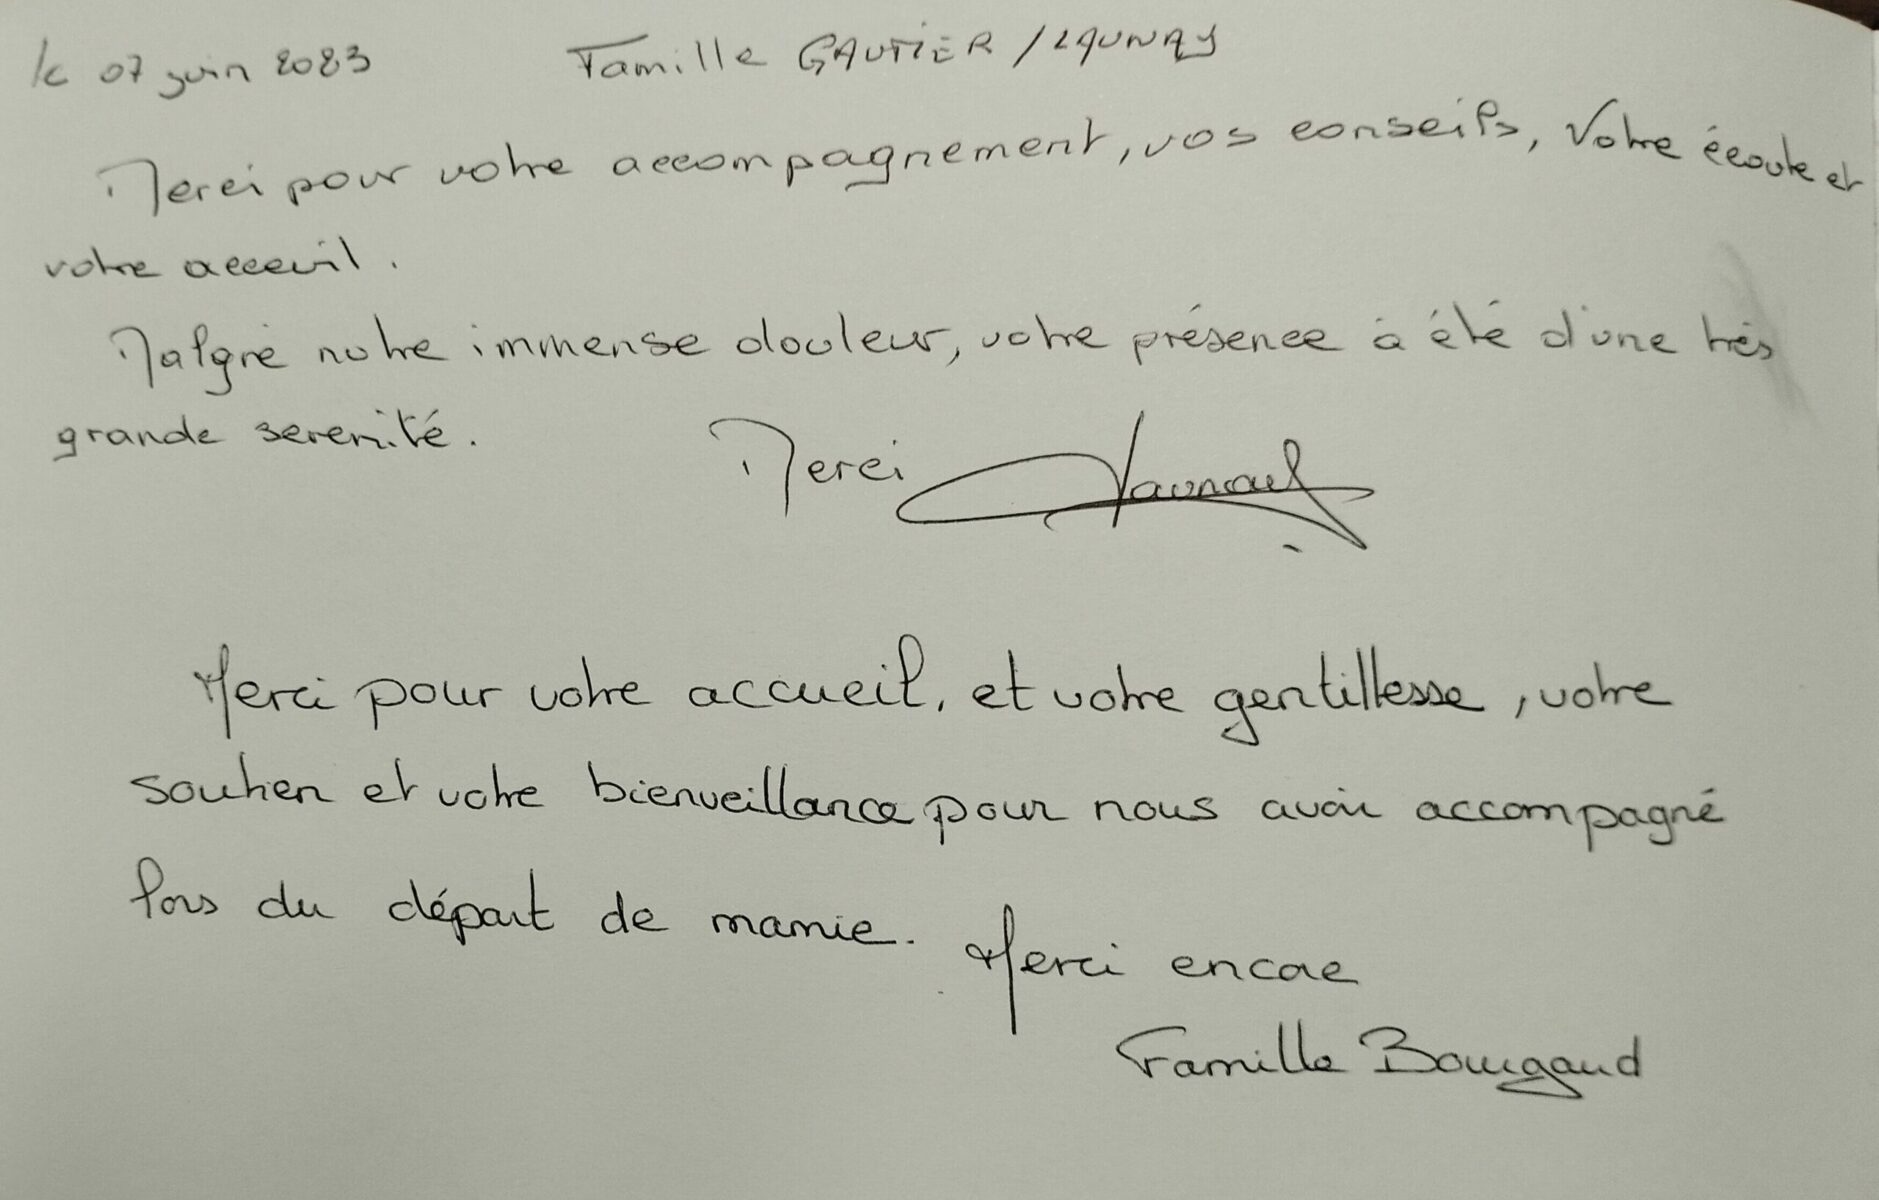 le 07 juin 2023 Famille GAUTIER / LAUNAY
Merci pour votre accompagnement, vos conseils, Votre écoute et
votre acceuil.
Malgré notre immense douleur, votre présence à été d'une très
grande serenité.
Merci
Merci pour votre accueil, et votre gentillesse, votre
soutien et votre bienveillance pour nous avoir accompagné
lors du départ de mamie.
Merci encore
Famille Bourgaud